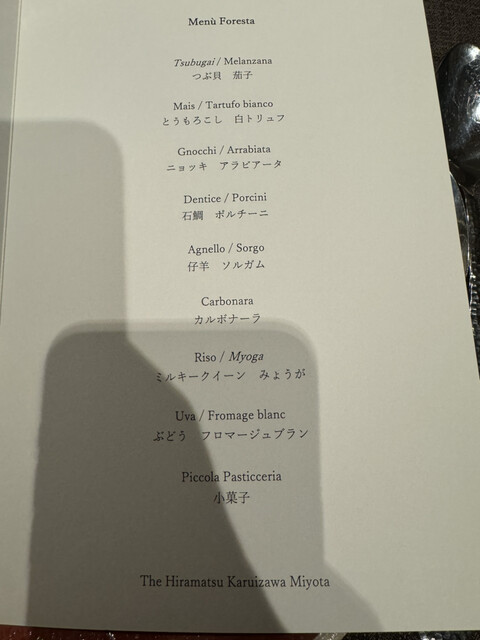 Menù Foresta
Tsubugai / Melanzana
つぶ貝　茄子
Mais / Tartufo bianco
とうもろこし　白トリュフ
Gnocchi / Arrabiata
ニョッキ　アラビアータ
Dentice / Porcini
石鯛　ポルチーニ
Agnello / Sorgo
仔羊　ソルガム
Carbonara
カルボナーラ
Riso / Myoga
ミルキークイーン　みょうが
Uva / Fromage blanc
ぶどう　フロマージュブラン
Piccola Pasticceria
小菓子
The Hiramatsu Karuizawa Miyota